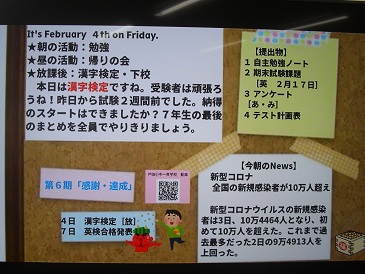 It's February 4th on Friday.
★朝の活動：勉強
★昼の活動：帰りの会
★放課後：漢字検定・下校
本日は漢字検定ですね。受験者は頑張ろ
うね！昨日から試験２週間前でした。納得
のスタートはできましたか？７年生の最後
のまとめを全員でやりきりましょう。
【提出物】
１ 自主勉強ノート
２ 期末試験課題
［英 ２月１７日］
３ アンケート
［あ・み］
４ テスト計画表
第６期「感謝・達成」
４日 漢字検定［放］
７日 英検合格発表
【今朝のNews】
新型コロナ
全国の新規感染者が10万人超え
新型コロナウイルスの新規感染
者は3日、10万4464人となり、初
めて10万人を超えた。これまで過
去最多だった2日の9万4913人を
上回った。